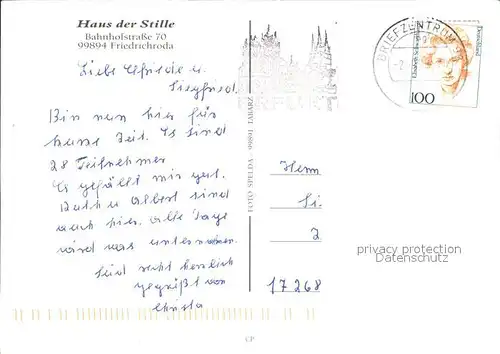 Haus der Stille
Bahnhofstraße 70
99894 Friedrichroda
Liebe Elfriede u.
Siegfried
Bin nun hier für
kurze Zeit. Es sind
28 Teilnehmer
Es gefällt mir gut.
Ruth u Albert sind
auch hier. Alle Tage
wird was unternommen.
Seid recht herzlich
gegrüßt von
Christa
FOTO SPELDA 99891 TABARZ
CP
ERFURT
BRIEFZENTRUM 99
Elisabeth Schwarzhaupt
Deutschland
100
Herrn
17268
privacy protection
Datenschutz